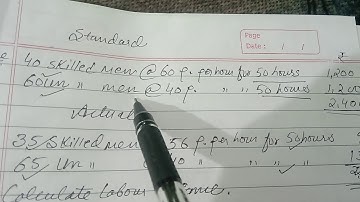 Page
Date : / /
Standard
40 skilled men @ 60 p. per hour for 50 hours 1,200
60 un " men @ 40 p. " " 50 hours 1,200
2,400
Actual
35 skilled men 56 p. per hour for 50 hours
65 un " 40 p. " "
Calculate Labour